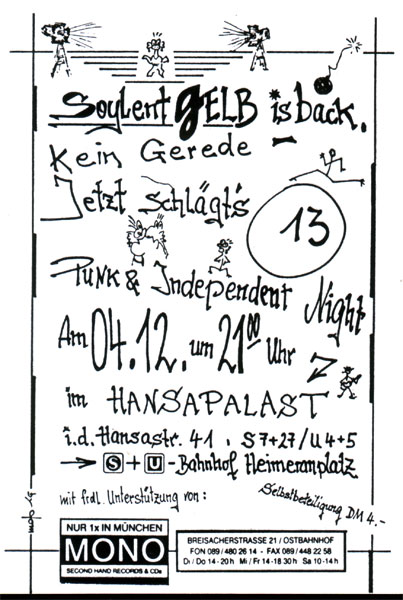 Soylent gELB is back.
Kein Gerede -
Jetzt schlägt's
13
PUNK & Independent Night
Am 04.12. um 21⁰⁰ Uhr
im HANSAPALAST
i.d. Hansastr. 41 . S7+27/U4+5
→ S + U - Bahnhof Heimeranplatz
mit frdl. Unterstützung von:
Selbstbeteiligung DM 4.-
NUR 1x IN MÜNCHEN
MONO
SECOND HAND RECORDS & CDs
BREISACHERSTRASSE 21 / OSTBAHNHOF
FON 089 / 480 26 14 - FAX 089 / 448 22 58
Di / Do 14 - 20 h Mi / Fr 14 - 18 30 h Sa 10 - 14 h